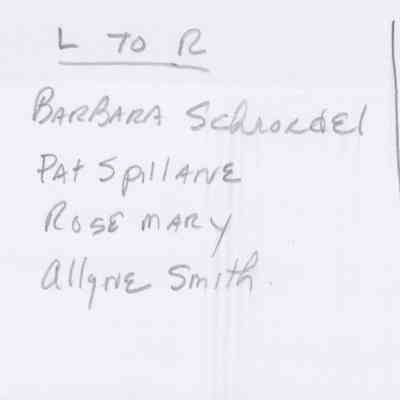 L TO R
BARBARA Schroedel
PAt SpillANE
ROSE MARY
Allyne Smith